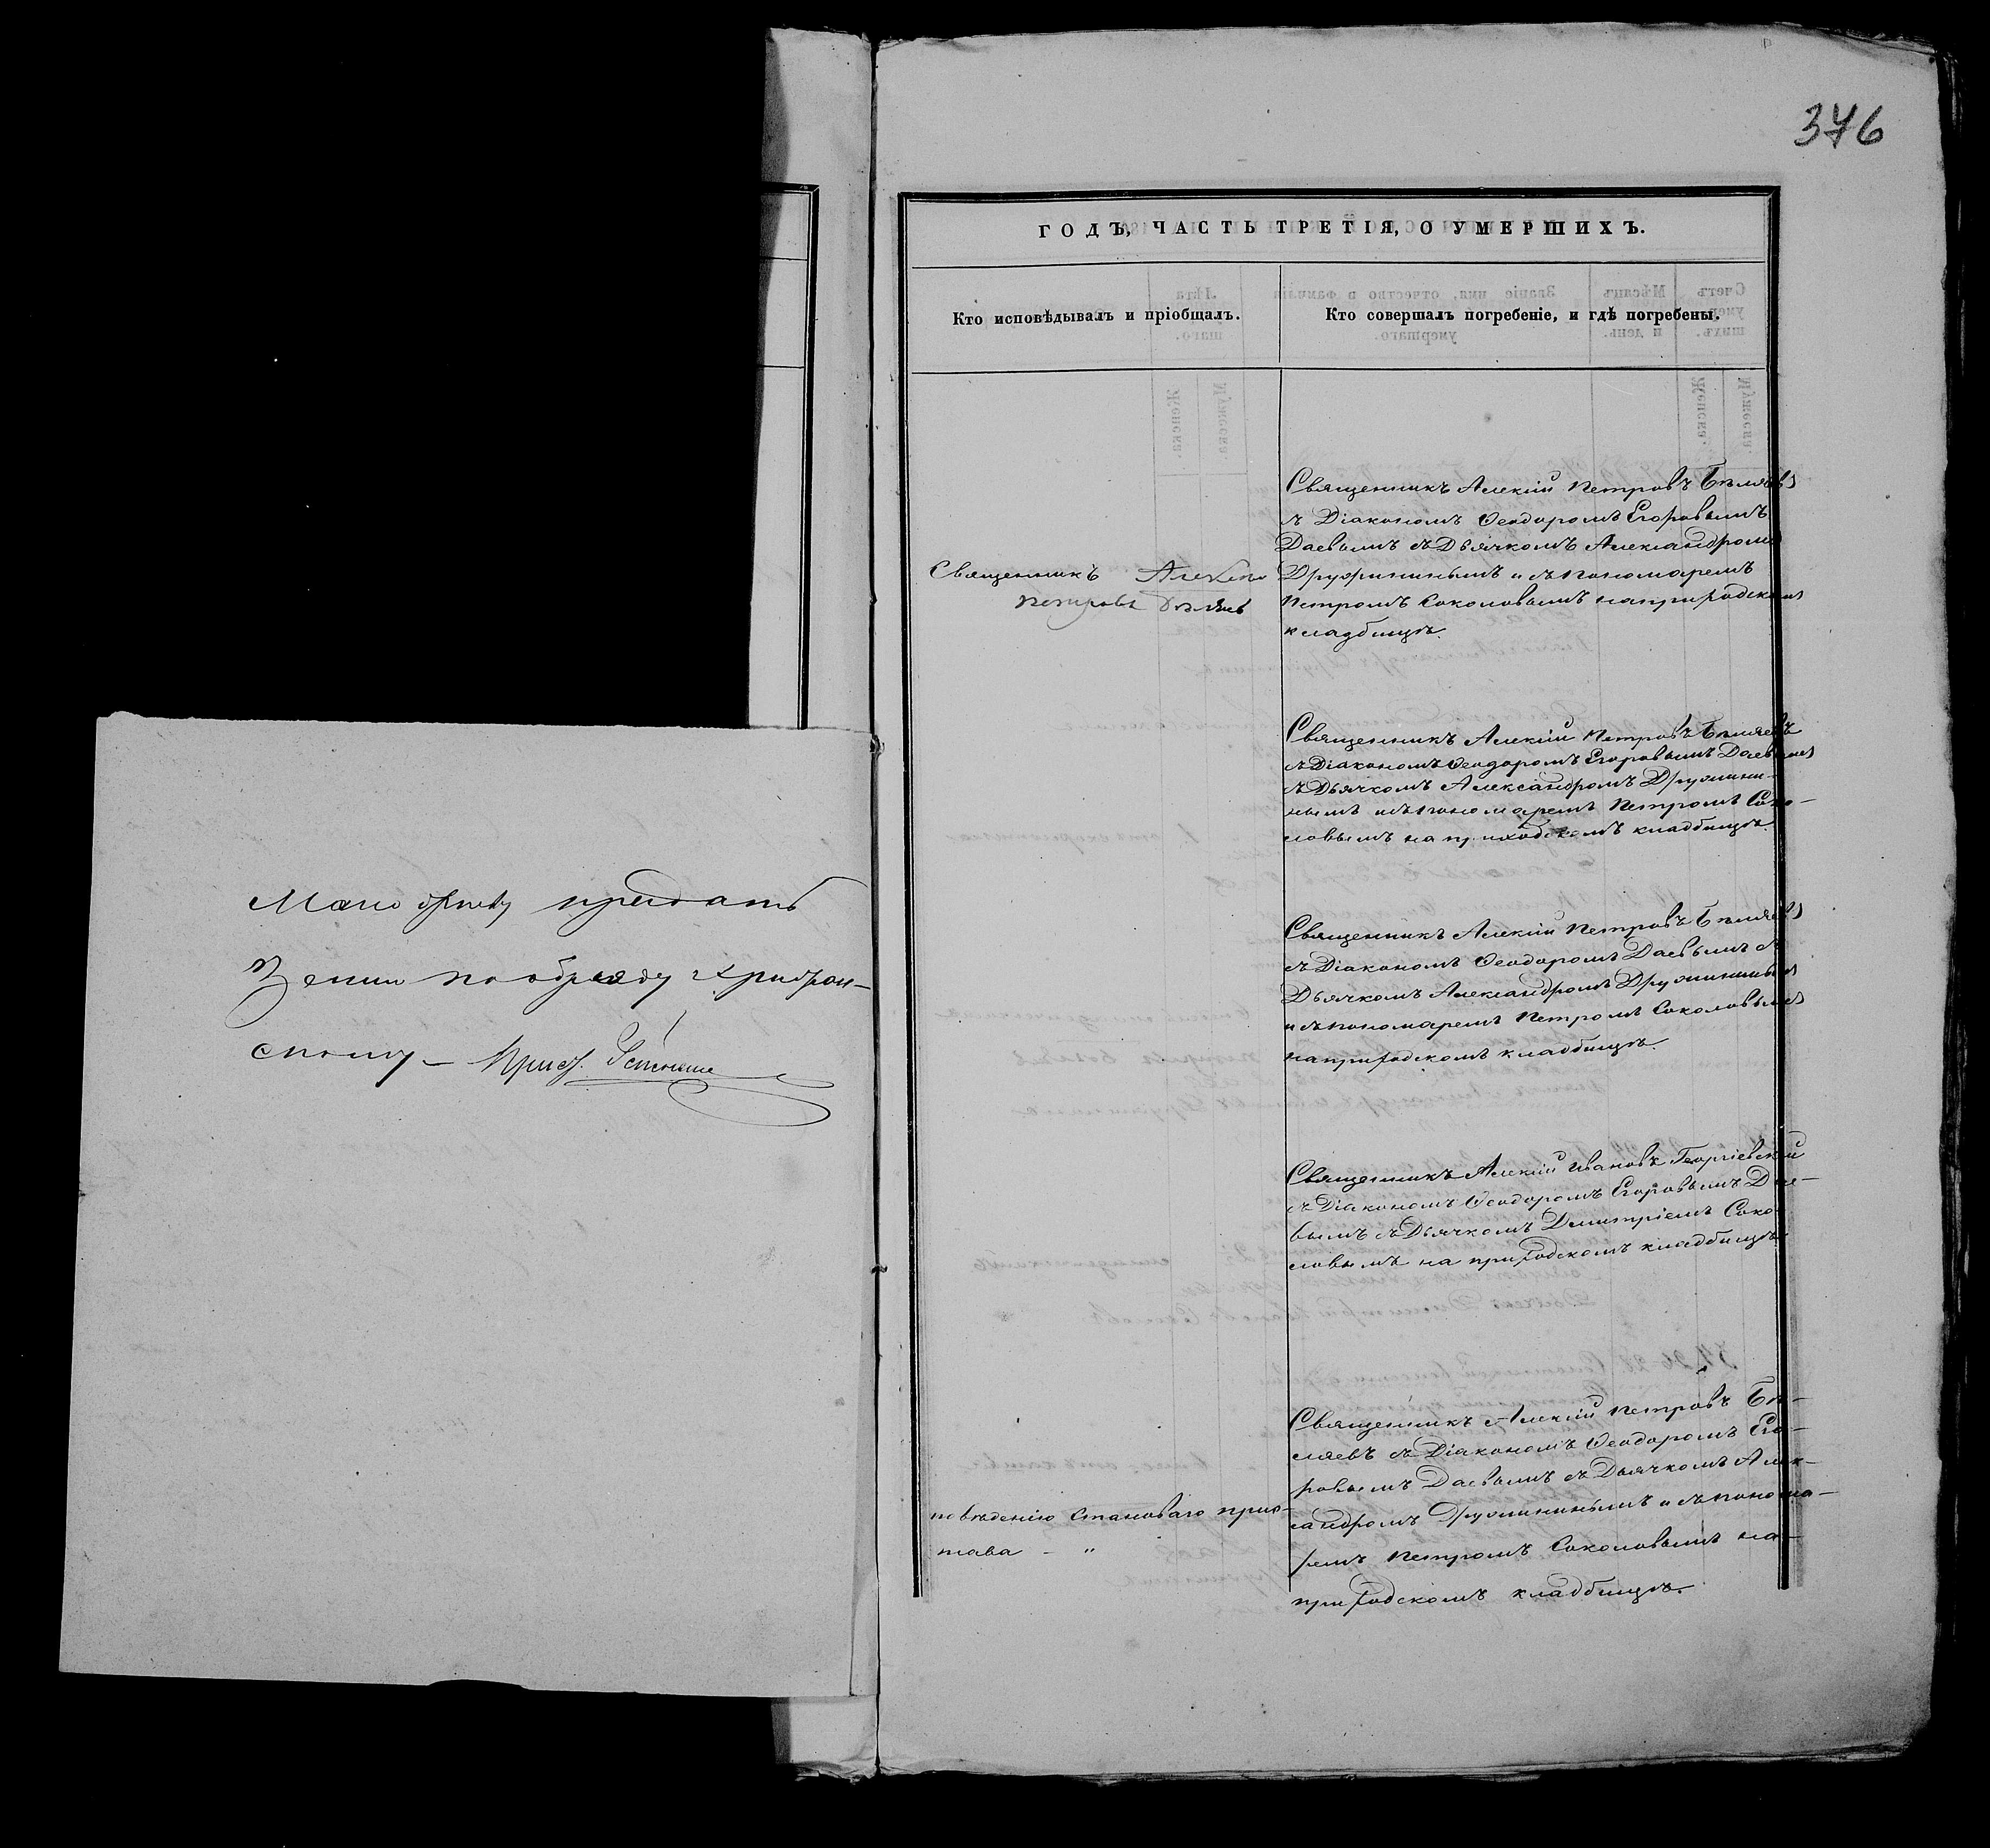 376
ГОДЪ, ЧАСТЬ ТРЕТІЯ, О УМЕРШИХЪ.
Кто исповѣдывалъ и пріобщалъ.
Кто совершалъ погребеніе, и гдѣ погребены.
Священникъ Алексій
Петровъ Бѣляевъ
Священникъ Алексій Петровъ Бѣляевъ
съ Діакономъ Ѳеодоромъ Егоровымъ
Даевымъ съ Дьячкомъ Александромъ
Дружининымъ и съ пономаремъ
Петромъ Соколовымъ на приходскомъ
кладбищѣ.
Священникъ Алексій Петровъ Бѣляевъ
съ Діакономъ Ѳеодоромъ Егоровымъ Даевымъ
съ Дьячкомъ Александромъ Дружини-
нымъ и съ пономаремъ Петромъ Соко-
ловымъ на приходскомъ кладбищѣ.
Священникъ Алексій Петровъ Бѣляевъ
съ Діакономъ Ѳеодоромъ Даевымъ съ
Дьячкомъ Александромъ Дружининымъ
и съ пономаремъ Петромъ Соколовымъ
на приходскомъ кладбищѣ.
Священникъ Алексій Ивановъ Георгіевскій
съ Діакономъ Ѳеодоромъ Егоровымъ Дае-
вымъ съ Дьячкомъ Димитріемъ Соко-
ловымъ на приходскомъ кладбищѣ.
по вѣденію Становаго прис-
тава - "
Священникъ Алексій Петровъ Бѣ-
ляевъ съ Діакономъ Ѳеодоромъ Его-
ровымъ Даевымъ съ Дьячкомъ Алек-
сандромъ Дружининымъ и съ понома-
ремъ Петромъ Соколовымъ на
приходскомъ кладбищѣ.
предать
Земли по обряду христіан-
скому - Прист.